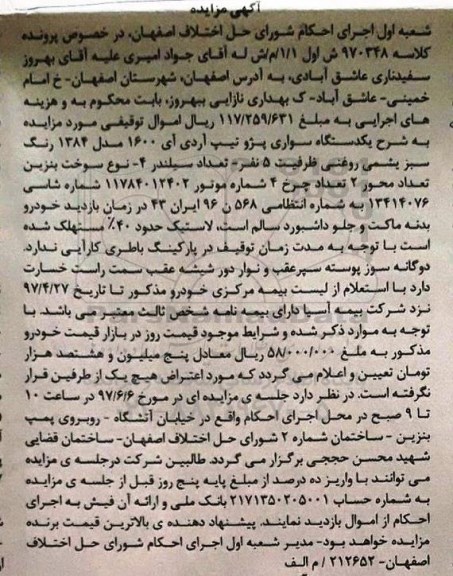 آگهی مزایده
شعبه اول اجرای احکام شورای حل اختلاف اصفهان، در خصوص پرونده
کلاسه ۹۷۰۳۴۸ ش اول ۱/۱/م/ش له آقای جواد امیری علیه آقای بهروز
سفیدناری عاشق آبادی، به آدرس اصفهان، شهرستان اصفهان- خ امام
خمینی- عاشق آباد- ک بهداری نازایی ببهروز، بابت محکوم به و هزینه
های اجرایی به مبلغ ۱۱۷/۲۵۹/۶۳۱ ریال اموال توقیفی مورد مزایده
به شرح یکدستگاه سواری پژو تیپ آردی آی ۱۶۰۰ مدل ۱۳۸۴ رنگ
سبز یشمی روغنی ظرفیت ۵ نفر- تعداد سیلندر ۴- نوع سوخت بنزین
تعداد محور ۲ تعداد چرخ ۴ شماره موتور ۱۱۷۸۴۰۱۲۴۰۲ شماره شاسی
۱۳۴۱۴۰۷۶ به شماره انتظامی ۵۶۸ ن ۹۶ ایران ۴۳ در زمان بازدید خودرو
بدنه ماکت و جلو داشبورد سالم است، لاستیک حدود ۴۰٪ مستهلک شده
است با توجه به مدت زمان توقیف در پارکینگ باطری کارآیی ندارد.
دوگانه سوز پوسته سپرعقب و نوار دور شیشه عقب سمت راست خسارت
دارد با استعلام از لیست بیمه مرکزی خودرو مذکور تا تاریخ ۹۷/۴/۲۷
نزد شرکت بیمه آسیا دارای بیمه نامه شخص ثالث معتبر می باشد. با
توجه به موارد ذکر شده و شرایط موجود قیمت روز در بازار قیمت خودرو
مذکور به ملغ ۵۸/۰۰۰/۰۰۰ ریال معادل پنج میلیون و هشتصد هزار
تومان تعیین و اعلام می گردد که مورد اعتراض هیچ یک از طرفین قرار
نگرفته است. در نظر دارد جلسه ی مزایده ای در مورخ ۹۷/۶/۶ در ساعت ۱۰
تا ۹ صبح در محل اجرای احکام واقع در خیابان آتشگاه - روبروی پمپ
بنزین - ساختمان شماره ۲ شورای حل اختلاف اصفهان- ساختمان قضایی
شهید محسن حججی برگزار می گردد. طالبین شرکت درجلسه ی مزایده
می توانند با واریز ده درصد از مبلغ پایه پنج روز قبل از جلسه ی مزایده
به شماره حساب ۲۱۷۱۳۵۰۲۰۵۰۰۱ بانک ملی و ارائه آن فیش به اجرای
احکام از اموال بازدید نمایند. پیشنهاد دهنده ی بالاترین قیمت برنده
مزایده خواهد بود- مدیر شعبه اول اجرای احکام شورای حل اختلاف
اصفهان- ۲۱۲۶۵۲ / م الف